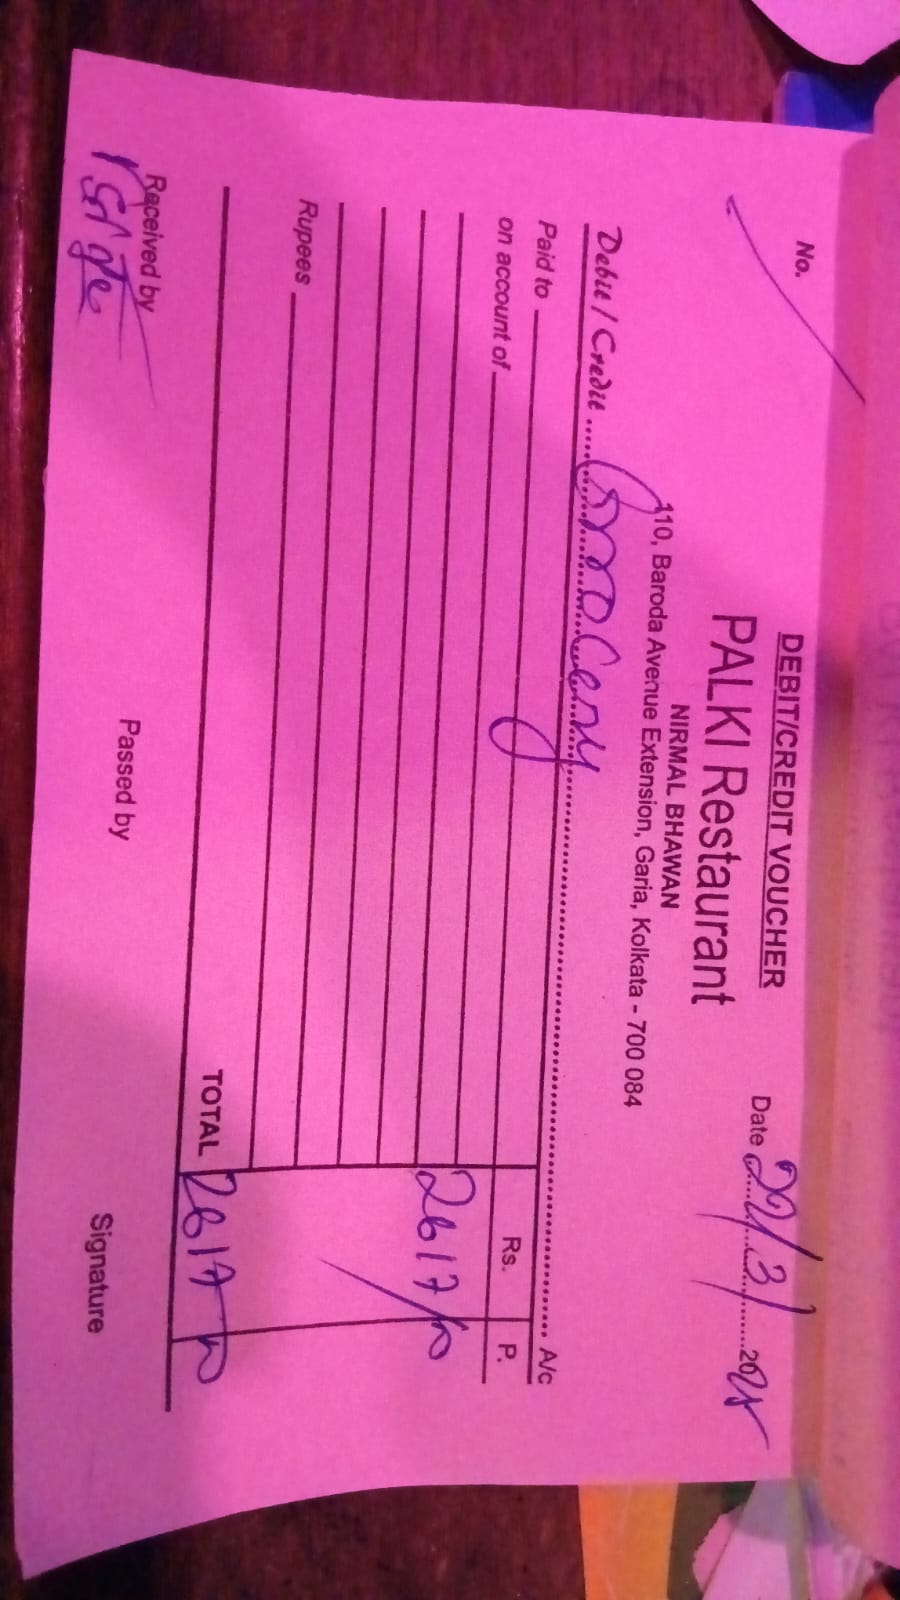 No.
DEBIT/CREDIT VOUCHER
PALKI Restaurant
NIRMAL BHAWAN
110, Baroda Avenue Extension, Garia, Kolkata - 700 084
Date 22/3/2025
Debit / Credit Grocery A/c
Paid to
on account of
Rs. P.
2617/-
Rupees
TOTAL 2617
Received by
Passed by
Signature